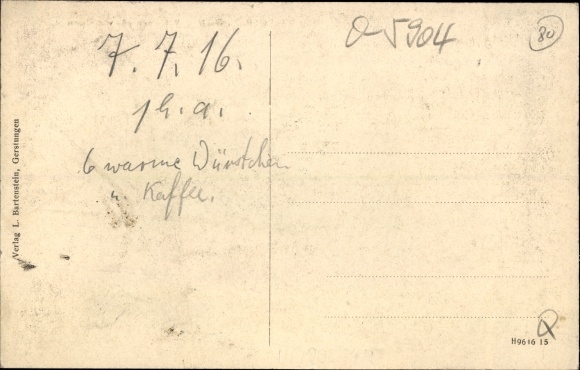 7. 7. 16.
6 warme Würstchen
u. Kaffee.
O-5904
80
Verlag L. Bartenstein, Gerstungen
H9616 15